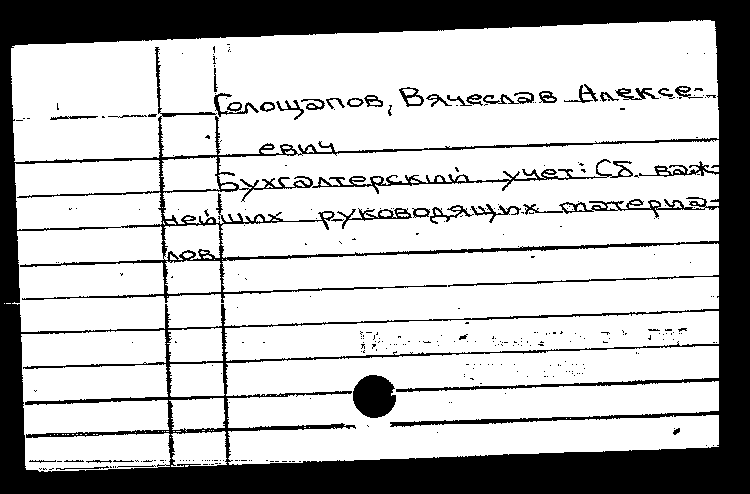 Голощапов, Вячеслав Алексе-
евич
Бухгалтерский учет: Сб. важ-
нейших руководящих материа-
лов